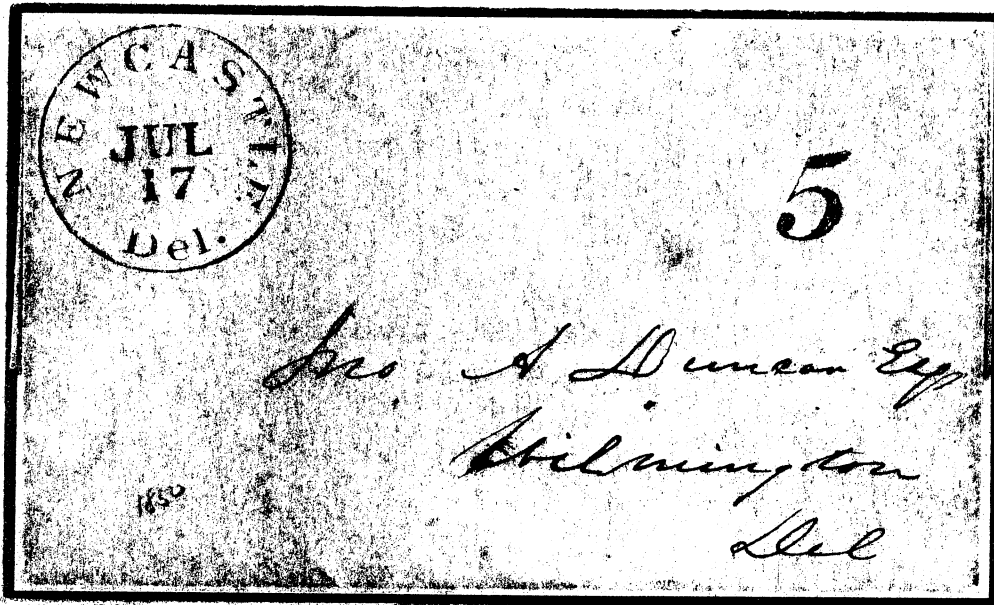 NEWCASTLE
JUL
17
Del.
5
Jno A Duncan Esq
Wilmington
Del
1850